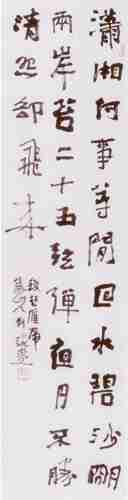 瀟湘何事等閒回水碧沙明
兩岸苔二十五弦彈夜月不勝
清怨卻飛來
錢起歸雁